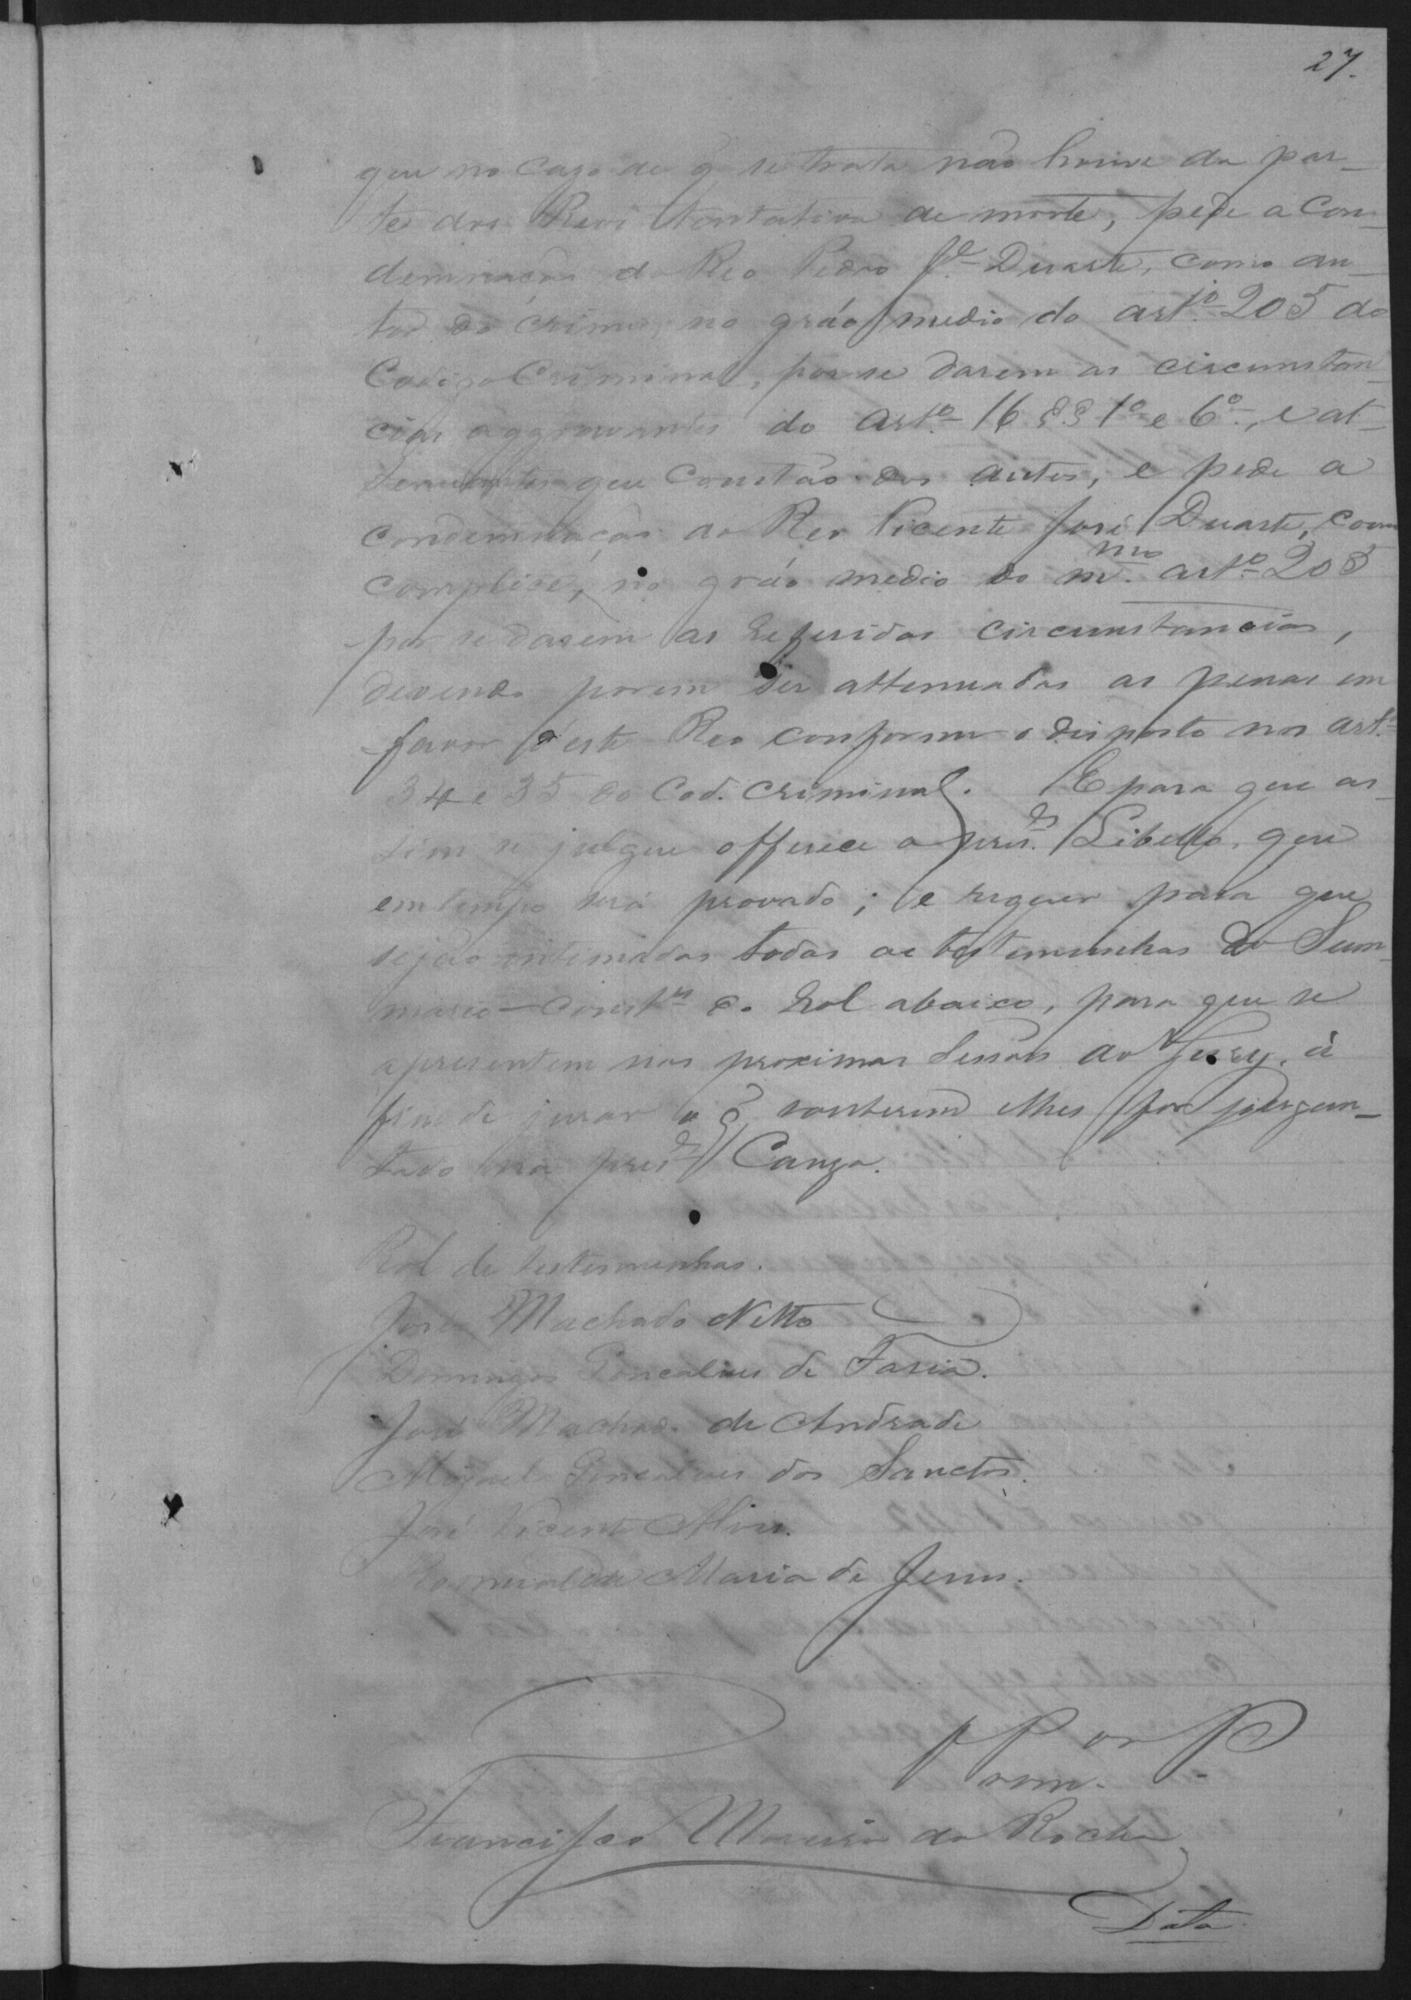 27.
que no cazo de q̃ se trata não houve da par-
te dos Reos tentativa de morte, pede a con-
demnação do Reo Pedro Je. Duarte, como au-
tor do crime, no gráo medio do artº. 205 do
Codigo Criminal, por se darem as circumstan-
cias aggravantes do artº. 16 §§ 1º e 6º, e at-
tenuantes que constão dos autos, e pede a
condemnação do Reo Vicente José Duarte, como
complice, no gráo medio do mmo. artº. 205
por se darem as referidas circumstancias,
devendo porem ser attenuadas as penas em
favor d'este Reo conforme o disposto nos art.
34 e 35 do Cod. Criminal. E para que as-
sim se julgue offerece o presde. Libello, que
em tempo será provado; e requer para que
sejão intimadas todas as testemunhas do Sum-
mario - constes. do rol abaixo, para que se
apresentem nas proximas Sessões do Jury, á
fim de jurar o q̃ souberem e lhes for pergun-
tado na presde. Cauza.
Rol de testemunhas.
José Machado Netto
Domingos Goncalves de Faria.
José Machado de Andrade
Miguel Goncalves dos Sanctos.
José Vicente Alves.
Romualda Maria de Jesus.
O Prom. or P.
Francisco Moreira da Rocha
Data